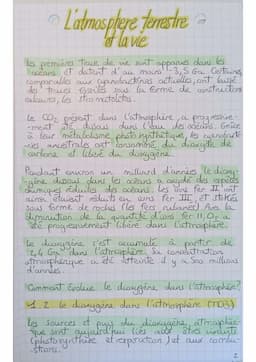 L'atmosphère terrestre
et la vie
les premières trace de vie sont apparues dans les
océans et datent d'au moins 3,5 Ga. Certaines,
comparables aux cyanobactéries actuelles, ont laissé
des traces fossiles sous la forme de constructions
calcaires, les stromatolites.
Le CO2 présent dans l'atmosphère a progressive-
-ment été dissous dans l'eau des océans. Grâce
à leur métabolisme photosynthétique, les cyanobacté-
-ries ancestrales ont consommé du dioxyde de
carbone et libéré du dioxygène.
Pendant environ un milliard d'années le dioxy-
-gène dissous dans les océans a oxydé des espèces
chimiques réduites des océans. les ions Fer II ont
ainsi étaient réduit en ions Fer III, et stockés
sous forme de roches (les fers rubanés). Avec la
diminution de la quantité d'ions Fer II, O2 a
été progressivement libéré dans l'atmosphère.
Le dioxygène s'est accumulé à partir de
2,4 Ga dans l'atmosphère. Sa concentration
atmosphérique a été atteinte il y a 500 millions
d'années.
Comment évolue le dioxygène dans l'atmosphère?
1.2. le dioxygène dans l'atmosphère (TD3)
les sources et puits du dioxygène atmosphéri-
-que sont aujourd'hui liés aux êtres vivants
(photosynthèse et respiration) et aux combu-
-stions.